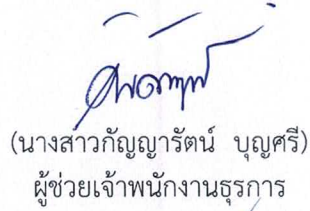 (นางสาวกัญญารัตน์ บุญศรี)
ผู้ช่วยเจ้าพนักงานธุรการ